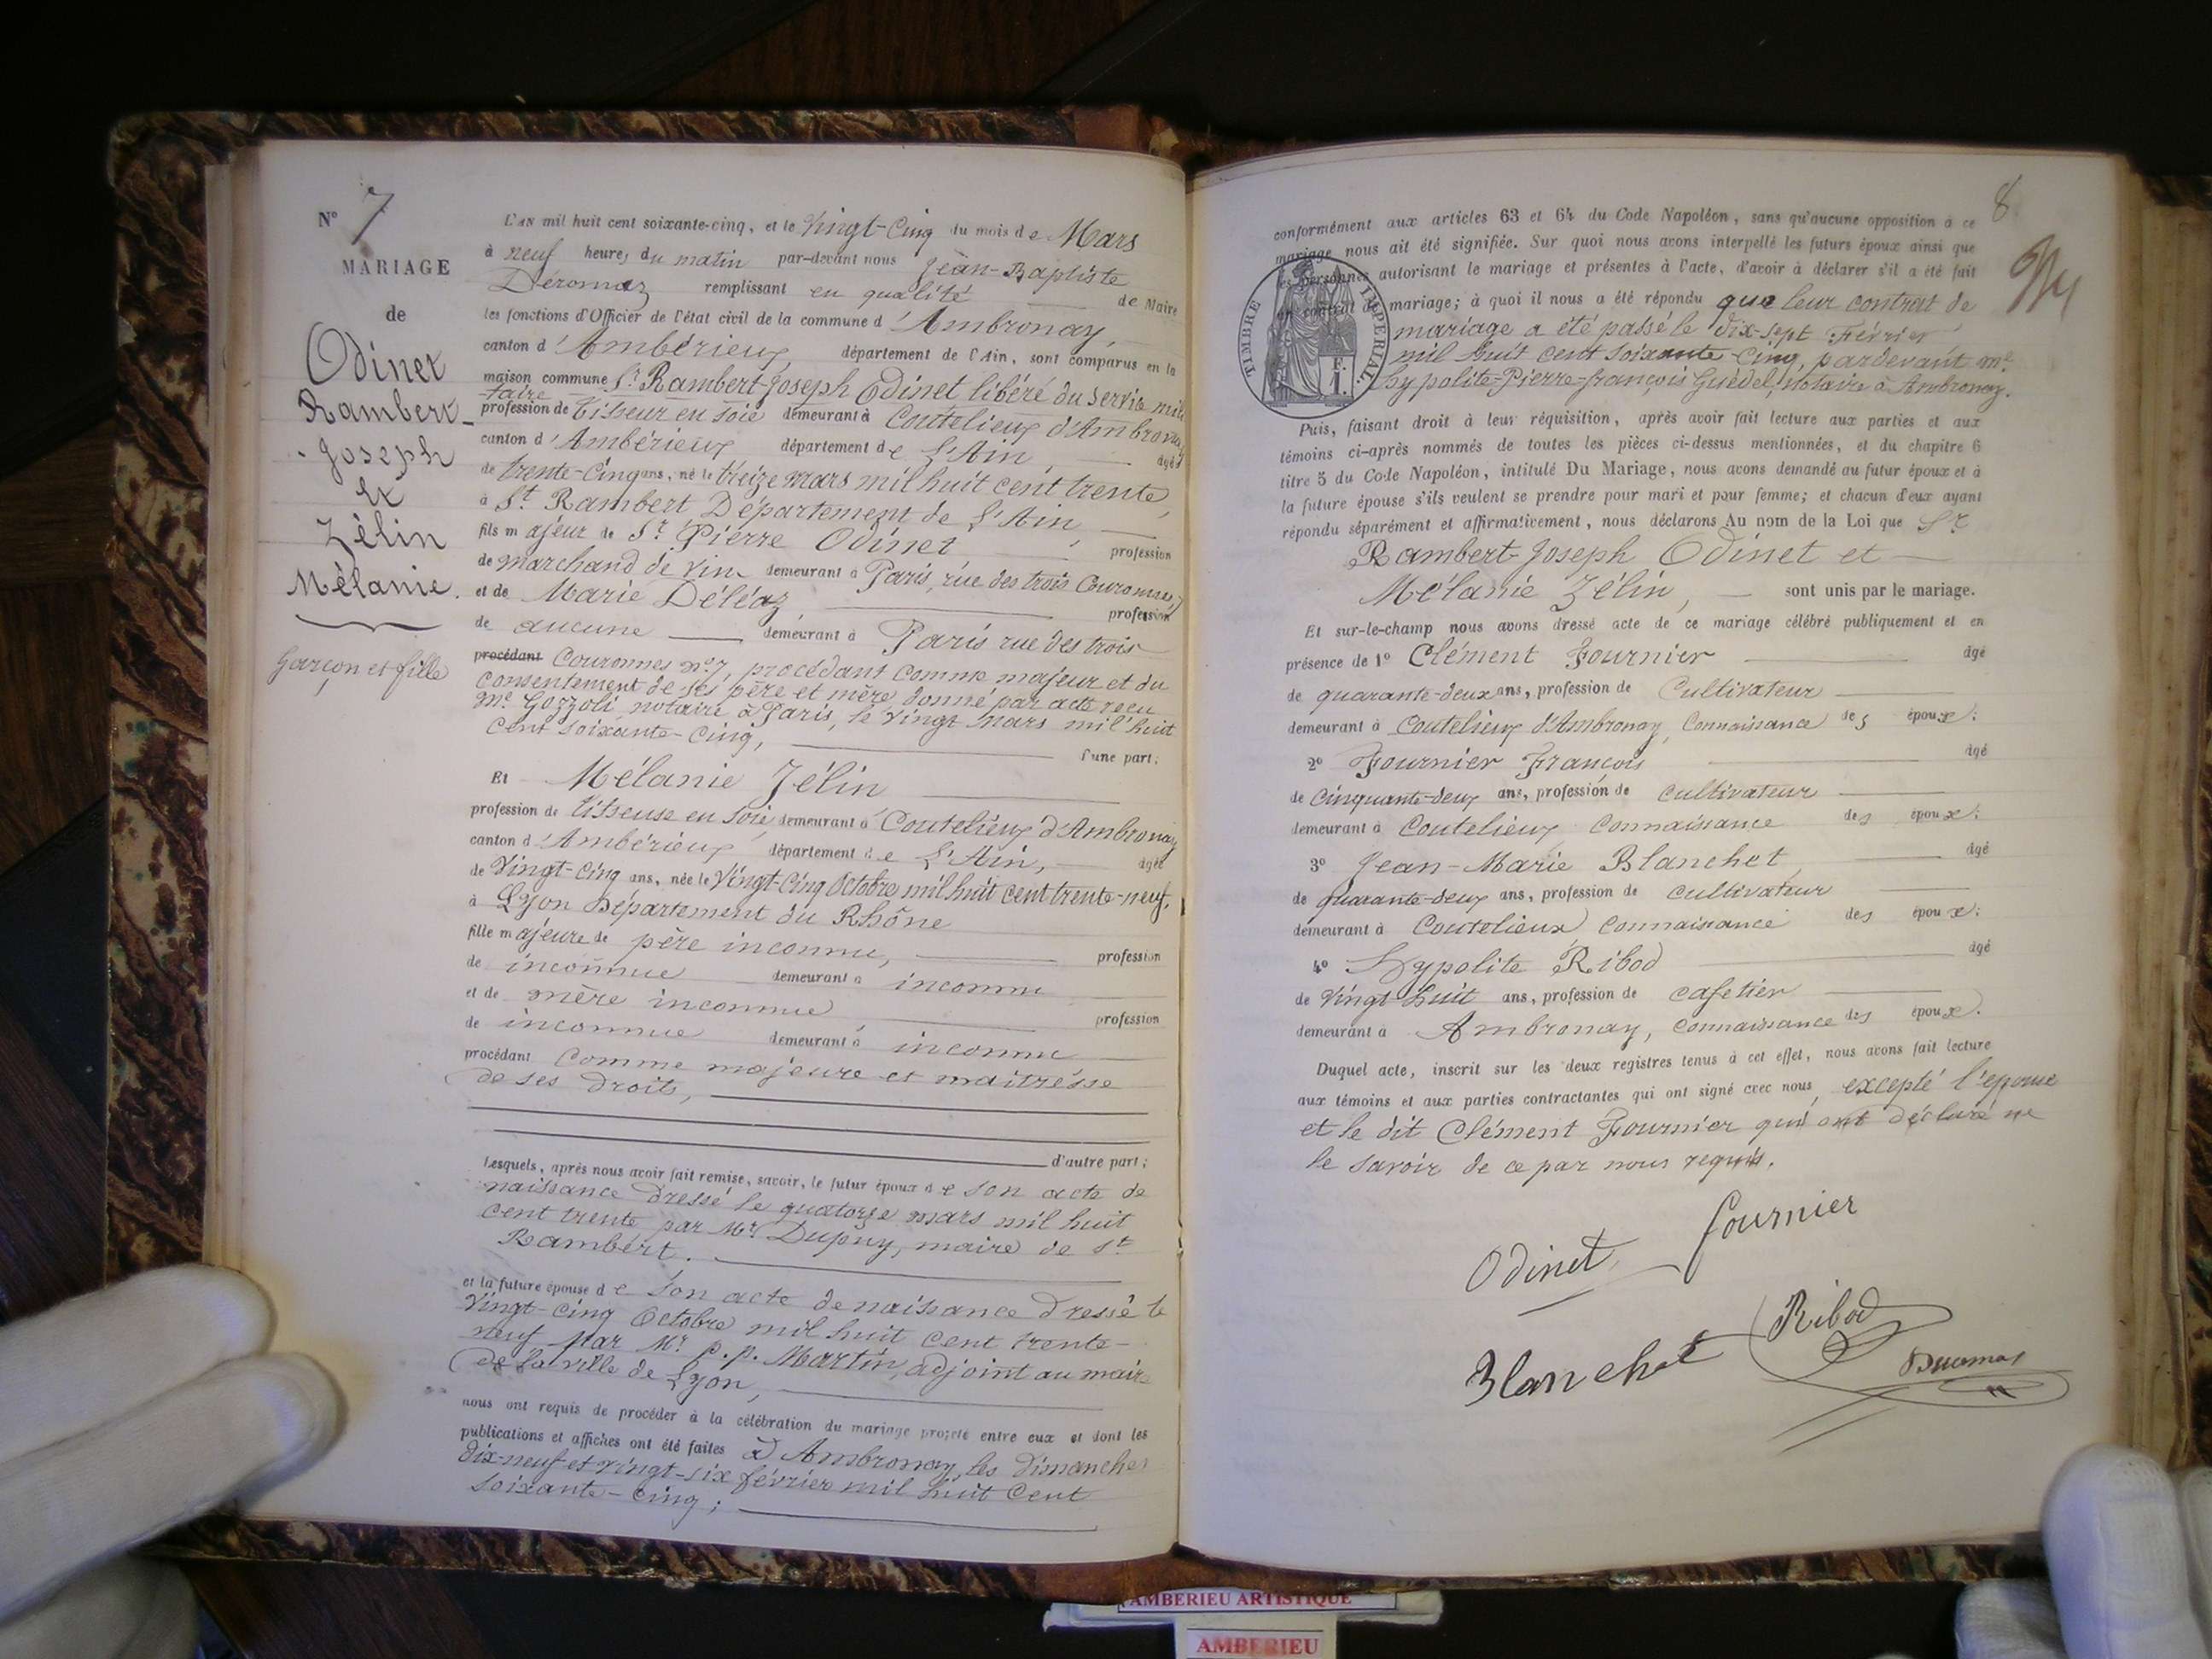 N° 7
MARIAGE
de
Odinet
Rambert-
Joseph
et
Zélin
Mélanie.
Garçon et fille
L'AN mil huit cent soixante-cinq, et le Vingt-Cinq du mois de Mars
à neuf heures du matin par-devant nous Jean-Baptiste
Déromaz remplissant en qualité de Maire
les fonctions d'Officier de l'état civil de la commune d'Ambronay,
canton d'Ambérieux département de l'Ain, sont comparus en la
maison commune Sr Rambert-Joseph Odinet libéré du service mili
taire
profession de Tisseur en soie demeurant à Coutelieux d'Ambronay
canton d'Ambérieux département de L'Ain, âgé
de trente-Cinq ans, né le treize mars mil huit cent trente,
à St. Rambert Département de L'Ain,
fils majeur de Sr Pierre Odinet, profession
de marchand de Vin demeurant à Paris, rue des trois Couronnes 7
et de Marie Déléaz, profession
de aucune demeurant à Paris rue des trois
procédant Couronnes n° 7, procédant comme majeur et du
consentement de ses père et mère donné par acte reçu
Me Gozzoli notaire à Paris, le vingt mars mil huit
cent soixante-Cinq, d'une part;
Et Mélanie Zélin
profession de titseuse en soie demeurant à Coutelieux d'Ambronay
canton d'Ambérieux département de L'Ain, âgée
de Vingt-Cinq ans, née le Vingt-Cinq Octobre mil huit cent trente-neuf,
à Lyon Département du Rhône
fille majeure de père inconnu, profession
de inconnue demeurant à inconnu
et de mère inconnue profession
de inconnue demeurant à inconnu
procédant Comme majeure et maitresse
de ses droits,
d'autre part;
Lesquels, après nous avoir fait remise, savoir, le futur époux de son acte de
naissance dressé le quatorze mars mil huit
cent trente par Mr Dupuy, maire de St
Rambert.
et la future épouse de son acte de naissance dressé le
Vingt-cinq Octobre mil huit cent trente-
neuf par Mr P.P. Martin, adjoint au maire
de la ville de Lyon,
nous ont requis de procéder à la célébration du mariage projeté entre eux et dont les
publications et affiches ont été faites à Ambronay, les Dimanches
dix-neuf et vingt-six février mil huit Cent
soixante-Cinq;
8.
conformément aux articles 63 et 64 du Code Napoléon, sans qu'aucune opposition à ce
mariage nous ait été signifiée. Sur quoi nous avons interpellé les futurs époux ainsi que
les personnes autorisant le mariage et présentes à l'acte, d'avoir à déclarer s'il a été fait
un contrat de mariage; à quoi il nous a été répondu que leur contrat de
mariage a été passé le Dix-sept Février
mil huit cent soixante-Cinq, pardevant me
hypolite-Pierre-françois Guédel, Notaire à Ambronay.
TIMBRE IMPERIAL.
F.
1.
Puis, faisant droit à leur réquisition, après avoir fait lecture aux parties et aux
témoins ci-après nommés de toutes les pièces ci-dessus mentionnées, et du chapitre 6
titre 5 du Code Napoléon, intitulé Du Mariage, nous avons demandé au futur époux et à
la future épouse s'ils veulent se prendre pour mari et pour femme; et chacun d'eux ayant
répondu séparément et affirmativement, nous déclarons Au nom de la Loi que Sr
Rambert-Joseph Odinet et
Mélanie Zélin, sont unis par le mariage.
Et sur-le-champ nous avons dressé acte de ce mariage célébré publiquement et en
présence de 1° Clément Fournier âgé
de quarante-deux ans, profession de Cultivateur
demeurant à Coutelieux d'Ambronay, Connaissance des époux;
2° Fournier François âgé
de Cinquante-deux ans, profession de cultivateur
demeurant à Coutelieux Connaissance des époux;
3° Jean-Marie Blanchet âgé
de quarante-deux ans, profession de cultivateur
demeurant à Coutelieux connaissance des époux;
4° Hypolite Ribod âgé
de Vingt-huit ans, profession de cafetier
demeurant à Ambronay, connaissance des époux.
Duquel acte, inscrit sur les deux registres tenus à cet effet, nous avons fait lecture
aux témoins et aux parties contractantes qui ont signé avec nous, excepté l'épouse
et le dit Clément Fournier qui ont déclaré ne
le savoir de ce par nous requis.
Odinet fournier
Blanchet Ribod
AMBERIEU ARTISTIQUE
AMBERIEU